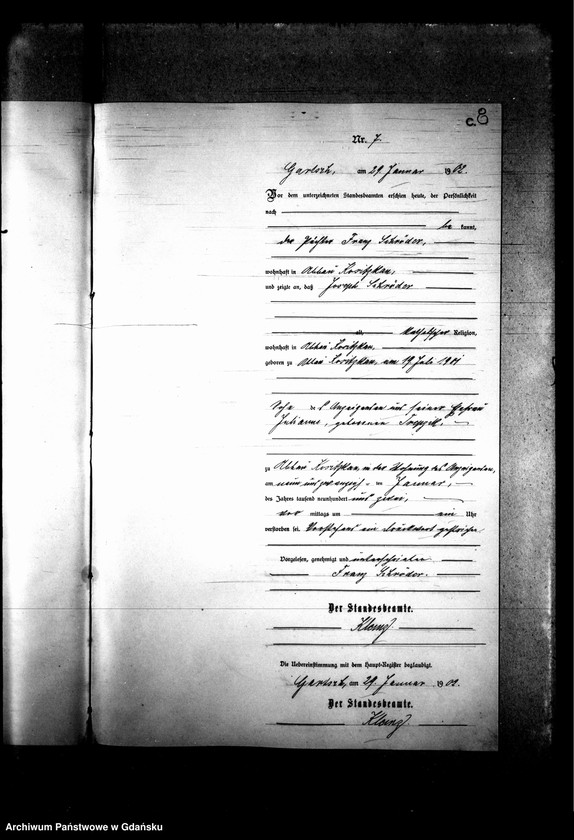 C. 8
Nr. 7.
am 29 Januar 1902.
Vor dem unterzeichneten Standesbeamten erschien heute, der Persönlichkeit
nach
be kannt,
der Pächter Franz Schröder,
wohnhaft in Abbau
und zeigte an, daß Joseph Schröder
alt, katholischer Religion,
wohnhaft in Abbau
geboren zu Abbau am 19 Juli 1901
Sohn des Anzeigenden und seiner Ehefrau
Julianna, geborenen
zu Abbau in der Wohnung des Anzeigenden,
am neun und zwanzigsten Januar,
des Jahres tausend neunhundert und zwei,
vor mittags um ein Uhr
verstorben sei. Vorstehend ein Druckwort gestrichen
Vorgelesen, genehmigt und unterschrieben
Franz Schröder.
Der Standesbeamte.
Die Uebereinstimmung mit dem Haupt-Register beglaubigt.
am 29. Januar 1902.
Der Standesbeamte.
Archiwum Państwowe w Gdańsku